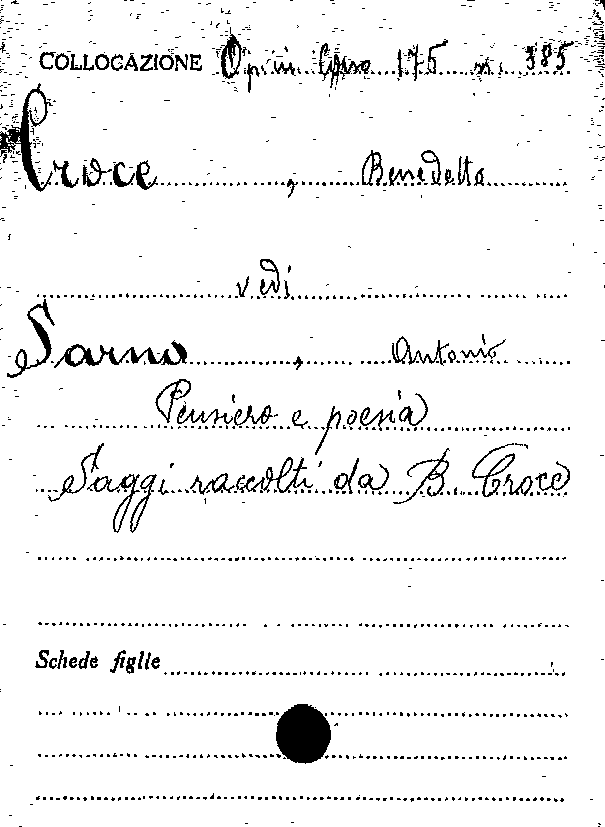 COLLOCAZIONE Opin. Cons 175 n. 385
Croce, Benedetto
vedi
Sarno, Antonio
Pensiero e poesia
Saggi raccolti da B. Croce
Schede figlie